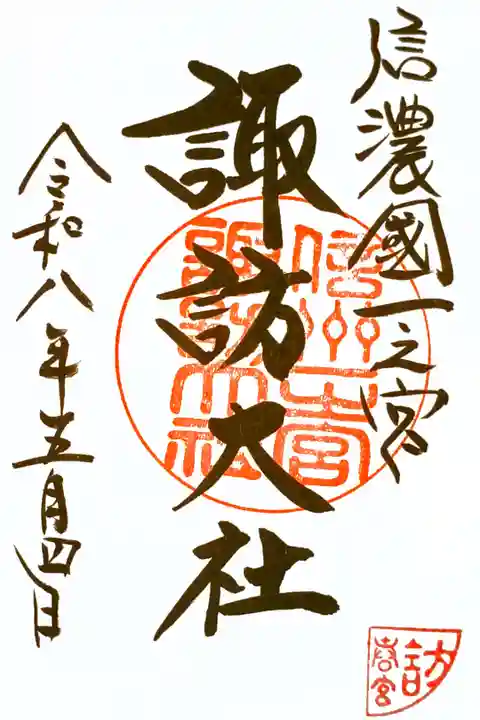 信濃國一之宮
諏訪大社
令和八年五月四日
信州一之宮
諏訪大社
訪
春宮